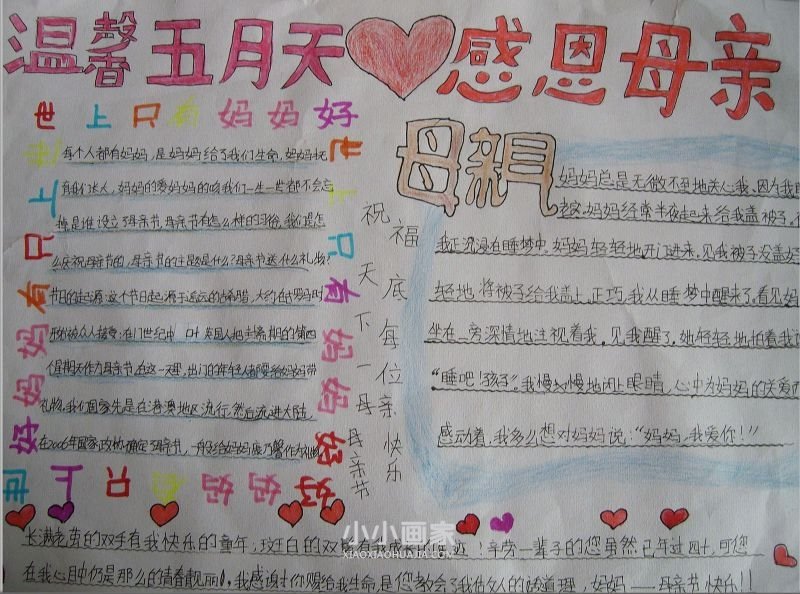 温馨五月天 感恩母亲
世上只有妈妈好
世上只有妈妈好
世上只有妈妈好
世上只有妈妈好
每个人都有妈妈,是妈妈给了我们生命,妈妈把
我们养大,妈妈的爱妈妈的吻我们一生一世都不会忘
掉是谁设立了母亲节,母亲节有怎么样的习俗,我们是怎
么庆祝母亲节的,母亲节的主题是什么?母亲节送什么礼物?
节日的起源:这个节日起源于远古的古希腊,大约在古罗马时
英国人把主斋期的第四
个星期天作为母亲节,在这一天里,出门的年轻人都要给妈妈带
礼物,我们国家先是在港澳地区流行,然后流进大陆
在2006年国家政协确定母亲节,一般给妈妈康乃馨作为礼物
祝福天底下每一位母亲
母亲节快乐
母亲
妈妈总是无微不至地关心我,因为我
妈妈经常半夜起来给我盖被子,
我正沉浸在睡梦中,妈妈轻轻地开门进来,见我被子没盖好
轻地将被子给我盖上,正巧,我从睡梦中醒来了,看见妈
坐在一旁深情地注视着我,见我醒了,她轻轻地拍着我说
“睡吧!孩子”。我慢慢地闭上眼睛,心中为妈妈的关爱而
感动着,我多么想对妈妈说:“妈妈,我爱你!”
长满老茧的双手有我快乐的童年;斑白的双鬓有我成长的足迹!辛劳一辈子的您虽然已年过四十,可您
在我心目中仍是那么的青春靓丽,我感谢你赐给我生命,是您教会了我做人的道理,妈妈——母亲节快乐!!
小小画家
XIAOXIAOHUAJIA.COM